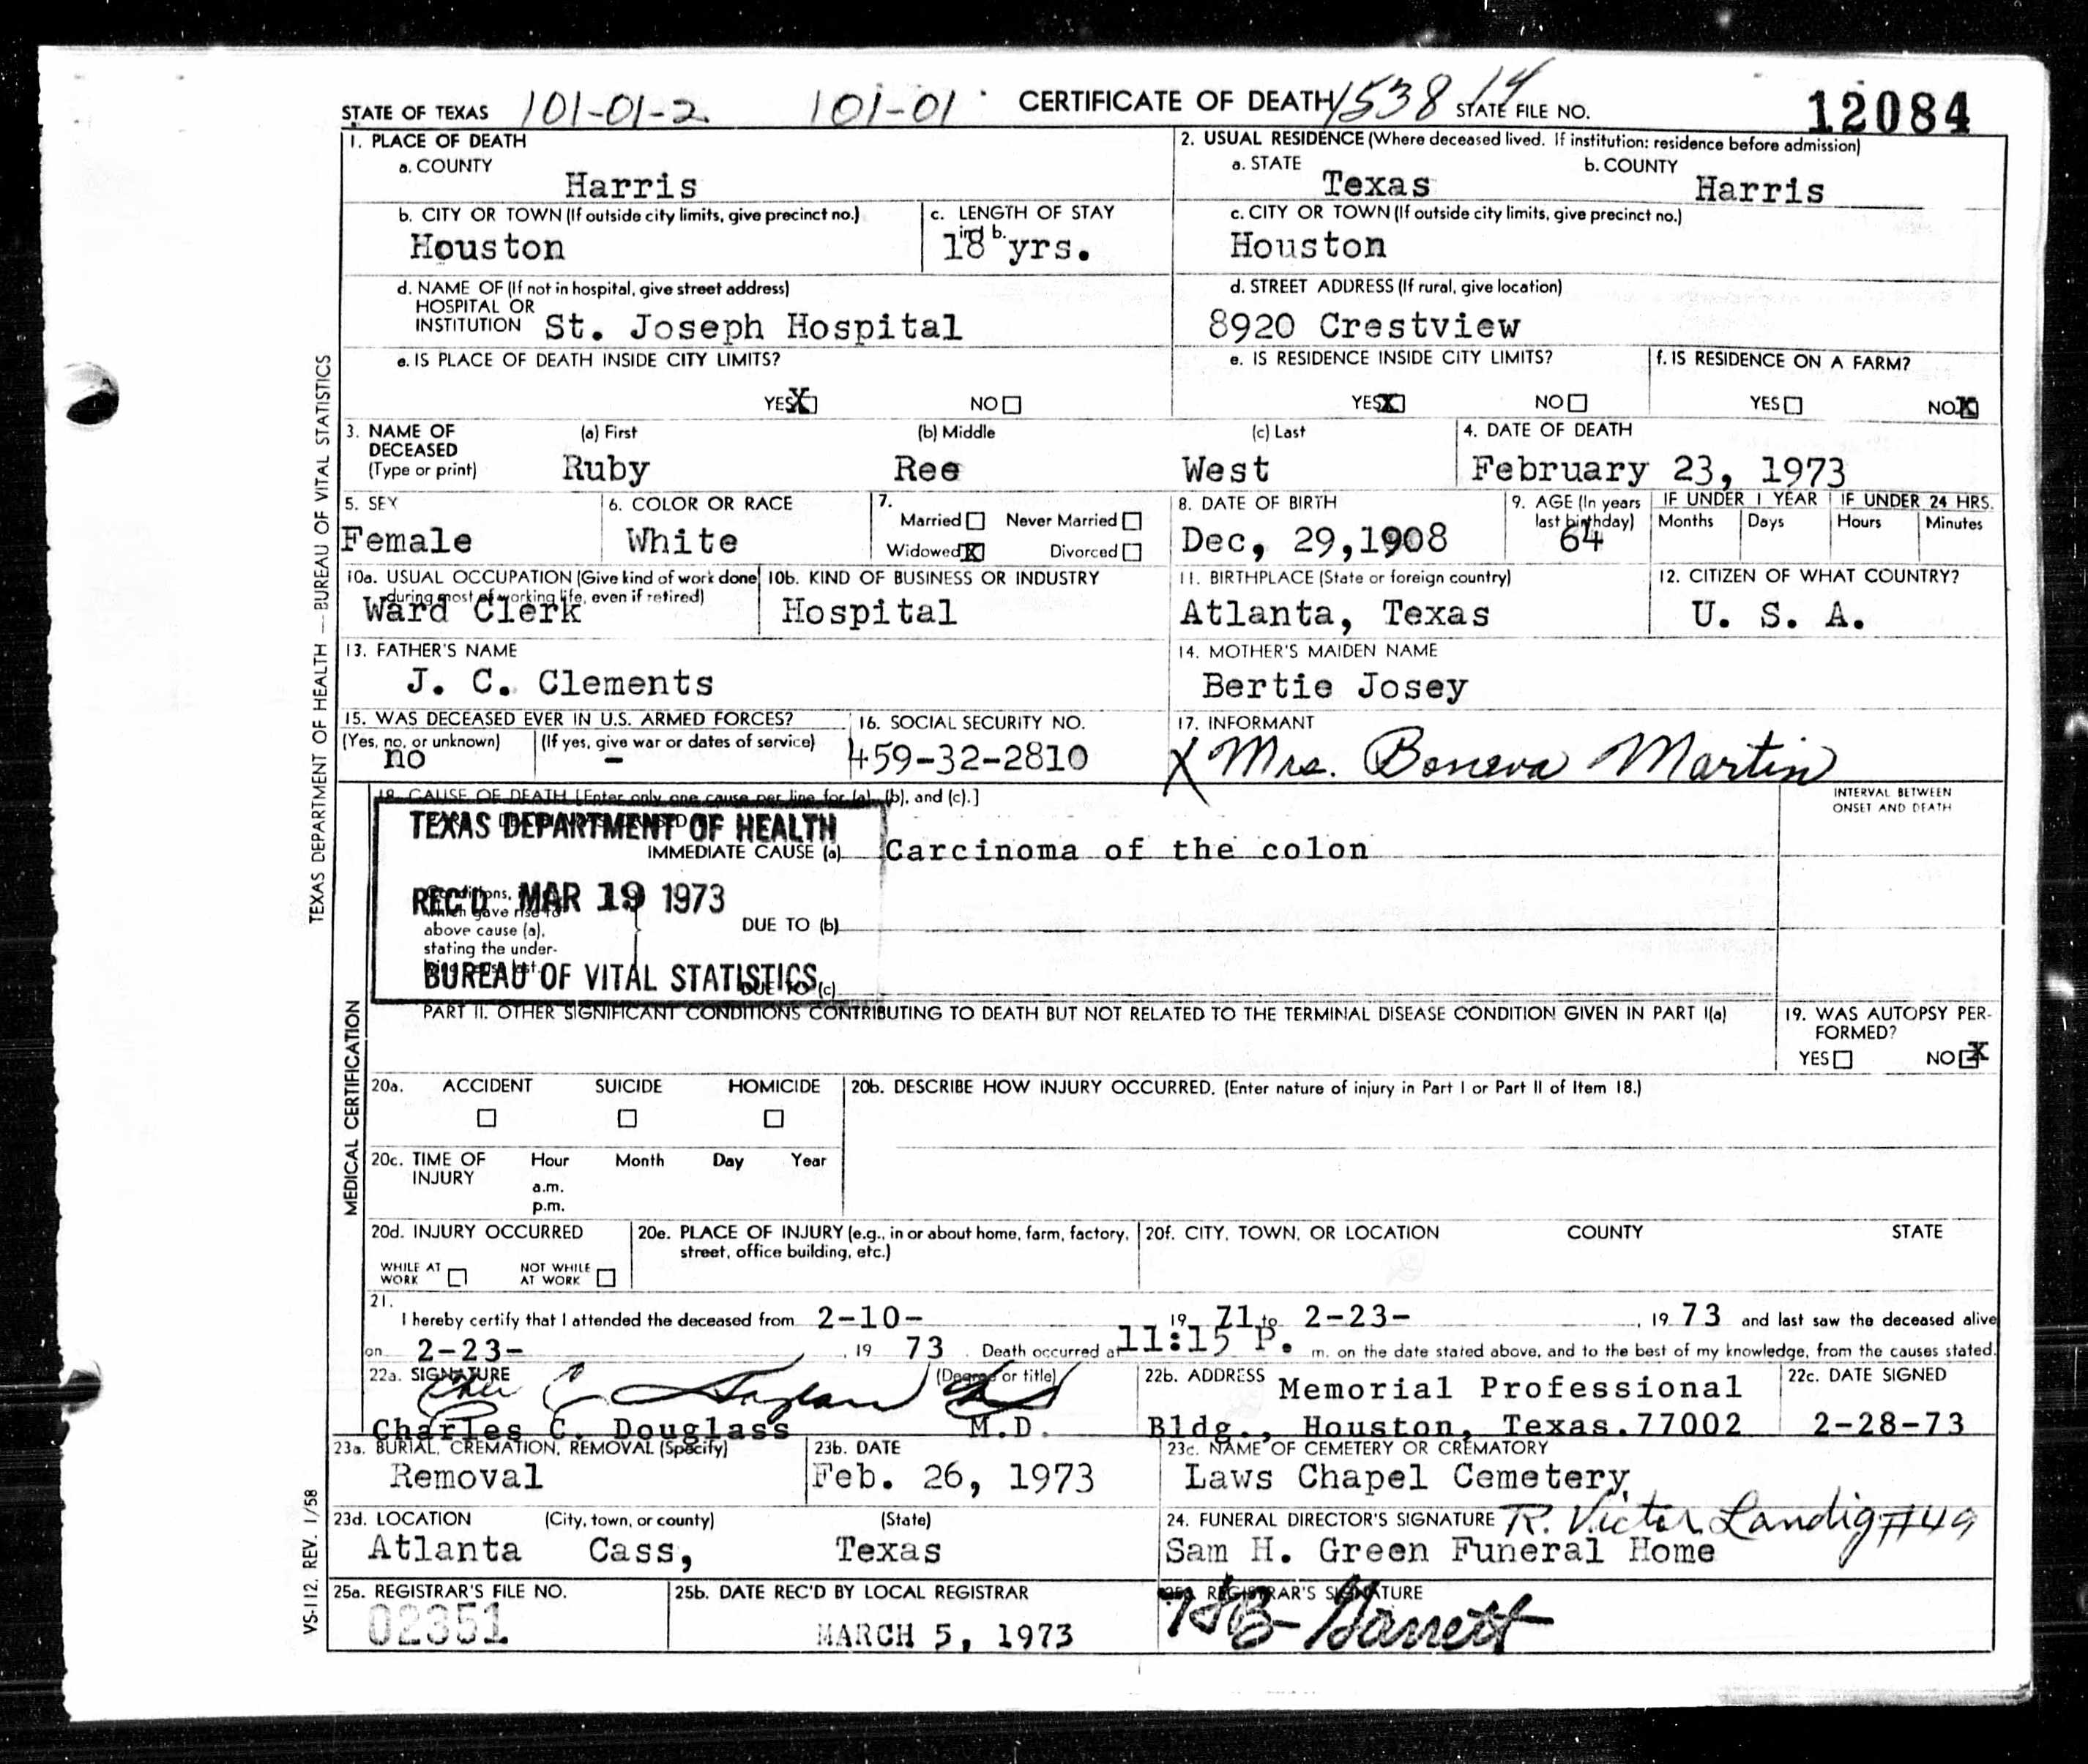 STATE OF TEXAS 101-01-2 101-01 CERTIFICATE OF DEATH 1538 14 STATE FILE NO. 12084
1. PLACE OF DEATH
a. COUNTY
Harris
2. USUAL RESIDENCE (Where deceased lived. If institution: residence before admission)
a. STATE b. COUNTY
Texas Harris
b. CITY OR TOWN (If outside city limits, give precinct no.)
Houston
c. LENGTH OF STAY
in b.
18 yrs.
c. CITY OR TOWN (If outside city limits, give precinct no.)
Houston
d. NAME OF (If not in hospital, give street address)
HOSPITAL OR
INSTITUTION St. Joseph Hospital
d. STREET ADDRESS (If rural, give location)
8920 Crestview
e. IS PLACE OF DEATH INSIDE CITY LIMITS?
YES X NO
e. IS RESIDENCE INSIDE CITY LIMITS?
YES X NO
f. IS RESIDENCE ON A FARM?
YES NO X
3. NAME OF (a) First (b) Middle (c) Last
DECEASED
(Type or print) Ruby Ree West
4. DATE OF DEATH
February 23, 1973
5. SEX
Female
6. COLOR OR RACE
White
7.
Married Never Married
Widowed X Divorced
8. DATE OF BIRTH
Dec, 29,1908
9. AGE (In years
last birthday)
64
IF UNDER 1 YEAR IF UNDER 24 HRS.
Months Days Hours Minutes
10a. USUAL OCCUPATION (Give kind of work done
during most of working life, even if retired)
Ward Clerk
10b. KIND OF BUSINESS OR INDUSTRY
Hospital
11. BIRTHPLACE (State or foreign country)
Atlanta, Texas
12. CITIZEN OF WHAT COUNTRY?
U. S. A.
13. FATHER'S NAME
J. C. Clements
14. MOTHER'S MAIDEN NAME
Bertie Josey
15. WAS DECEASED EVER IN U.S. ARMED FORCES?
(Yes, no, or unknown) (If yes, give war or dates of service)
no -
16. SOCIAL SECURITY NO.
459-32-2810
17. INFORMANT
X Mrs. Boneva Martin
18. CAUSE OF DEATH [Enter only one cause per line for (a), (b), and (c).]
INTERVAL BETWEEN
ONSET AND DEATH
TEXAS DEPARTMENT OF HEALTH
IMMEDIATE CAUSE (a) Carcinoma of the colon
REC'D MAR 19 1973
Conditions,
which gave rise to
above cause (a),
stating the under-
DUE TO (b)
BUREAU OF VITAL STATISTICS
DUE TO (c)
PART II. OTHER SIGNIFICANT CONDITIONS CONTRIBUTING TO DEATH BUT NOT RELATED TO THE TERMINAL DISEASE CONDITION GIVEN IN PART I(a)
19. WAS AUTOPSY PER-
FORMED?
YES NO X
20a. ACCIDENT SUICIDE HOMICIDE
20b. DESCRIBE HOW INJURY OCCURRED. (Enter nature of injury in Part I or Part II of Item 18.)
20c. TIME OF Hour Month Day Year
INJURY
a.m.
p.m.
20d. INJURY OCCURRED
WHILE AT
WORK
NOT WHILE
AT WORK
20e. PLACE OF INJURY (e.g., in or about home, farm, factory,
street, office building, etc.)
20f. CITY, TOWN, OR LOCATION COUNTY STATE
21.
I hereby certify that I attended the deceased from 2-10- 19 71 to 2-23- , 19 73 and last saw the deceased alive
on 2-23- , 19 73 . Death occurred at 11:15 P. m. on the date stated above, and to the best of my knowledge, from the causes stated.
22a. SIGNATURE (Degree or title)
Charles C. Douglass M.D.
22b. ADDRESS Memorial Professional
Bldg., Houston, Texas.77002
22c. DATE SIGNED
2-28-73
23a. BURIAL, CREMATION, REMOVAL (Specify)
Removal
23b. DATE
Feb. 26, 1973
23c. NAME OF CEMETERY OR CREMATORY
Laws Chapel Cemetery
23d. LOCATION (City, town, or county) (State)
Atlanta Cass, Texas
24. FUNERAL DIRECTOR'S SIGNATURE R. Victor Landig #49
Sam H. Green Funeral Home
25a. REGISTRAR'S FILE NO.
02351
25b. DATE REC'D BY LOCAL REGISTRAR
MARCH 5, 1973
REGISTRAR'S SIGNATURE
HB Garrett
TEXAS DEPARTMENT OF HEALTH — BUREAU OF VITAL STATISTICS
MEDICAL CERTIFICATION
VS-112, REV. 1/58